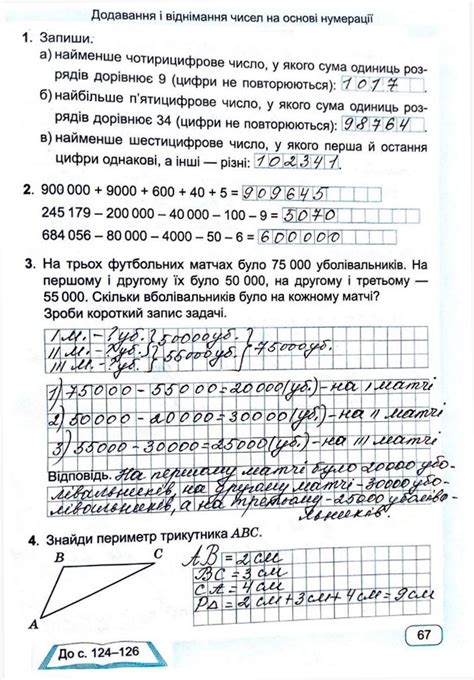 Додавання і віднімання чисел на основі нумерації
1. Запиши.
а) найменше чотирицифрове число, у якого сума одиниць роз-
рядів дорівнює 9 (цифри не повторюються): 1017.
б) найбільше п'ятицифрове число, у якого сума одиниць роз-
рядів дорівнює 34 (цифри не повторюються): 98764.
в) найменше шестицифрове число, у якого перша й остання
цифри однакові, а інші — різні: 102341.
2. 900 000 + 9000 + 600 + 40 + 5 = 909645
245 179 – 200 000 – 40 000 – 100 – 9 = 5070
684 056 – 80 000 – 4000 – 50 – 6 = 600000
3. На трьох футбольних матчах було 75 000 уболівальників. На
першому і другому їх було 50 000, на другому і третьому —
55 000. Скільки вболівальників було на кожному матчі?
Зроби короткий запис задачі.
I м. – ? уб. } 50000 уб.
II м. – ? уб. } 55000 уб. } 75000 уб.
III м. – ? уб.
1) 75000 – 55000 = 20000 (уб.) – на I матчі
2) 50000 – 20000 = 30000 (уб.) – на II матчі
3) 55000 – 30000 = 25000 (уб.) – на III матчі
Відповідь. На першому матчі було 20000 убо-
лівальників, на другому матчі – 30000 убо-
лівальників, а на третьому – 25000 уболіва-
льників.
4. Знайди периметр трикутника ABC.
B C
A
AB = 2 см
BC = 3 см
CA = 4 см
P∆ = 2 см + 3 см + 4 см = 9 см
67
До с. 124–126